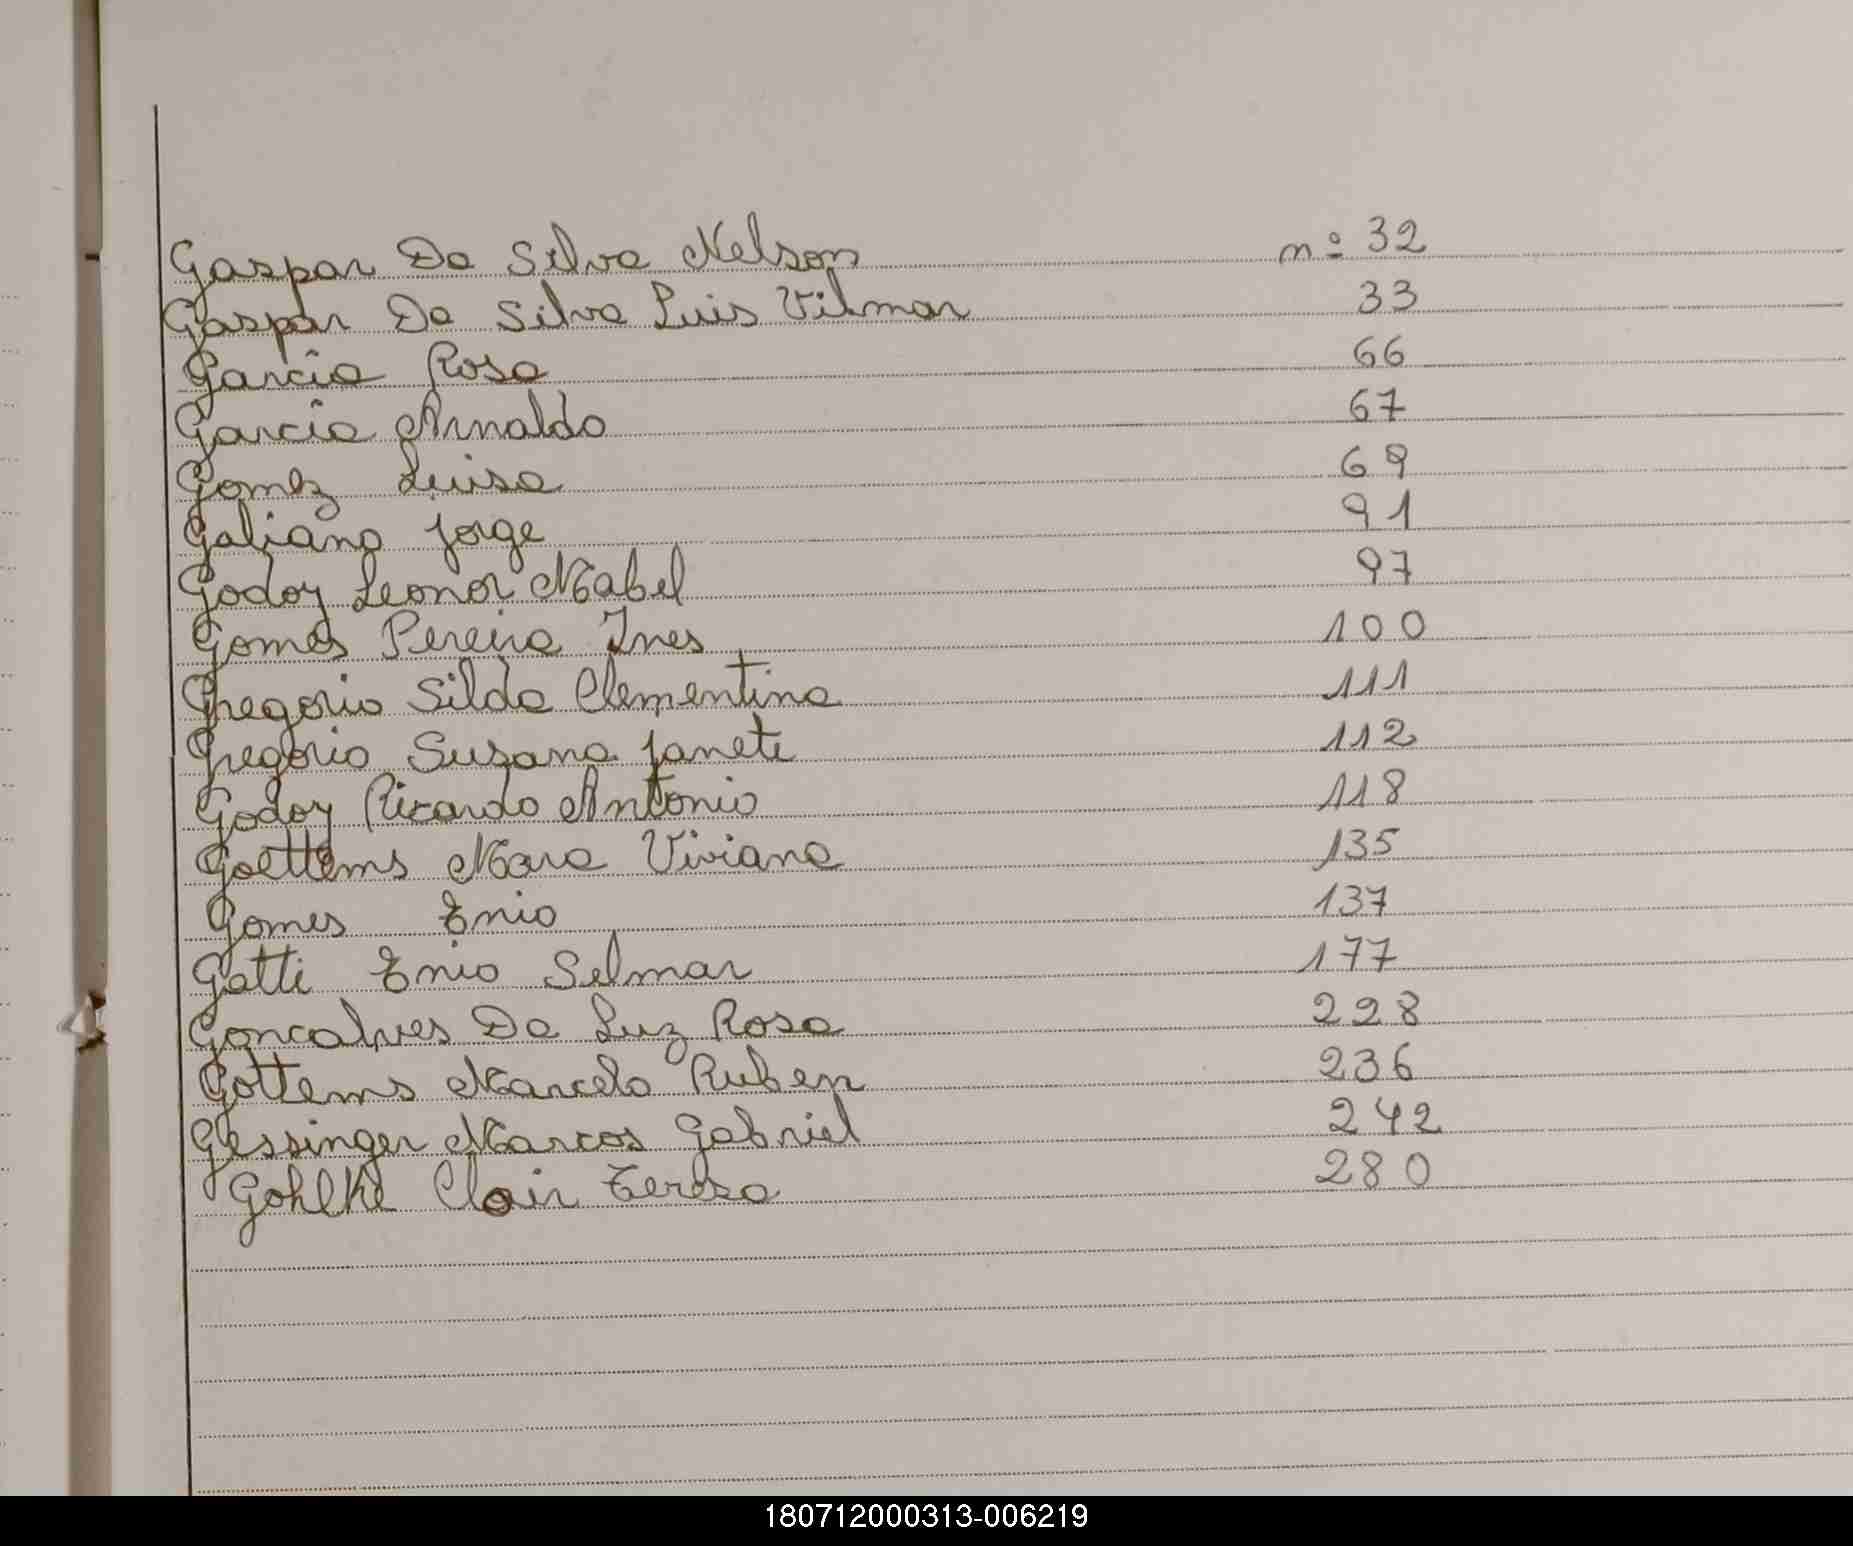 Gaspar Da Silva Nelson nº 32
Gaspar Da Silva Luis Vilmar 33
Garcia Rosa 66
Garcia Arnaldo 67
Gomez Luisa 69
Galiano Jorge 91
Godoy Leonor Mabel 97
Gomes Pereira Ines 100
Gregorio Silda Clementina 111
Gregorio Susana Janete 112
Godoy Ricardo Antonio 118
Goettems Mara Viviana 135
Gomes Enio 137
Gatti Enio Selmar 177
Goncalves Da Luz Rosa 228
Gottems Marcelo Ruben 236
Gessinger Marcos Gabriel 242
Gohlke Clair Teresa 280
180712000313-006219